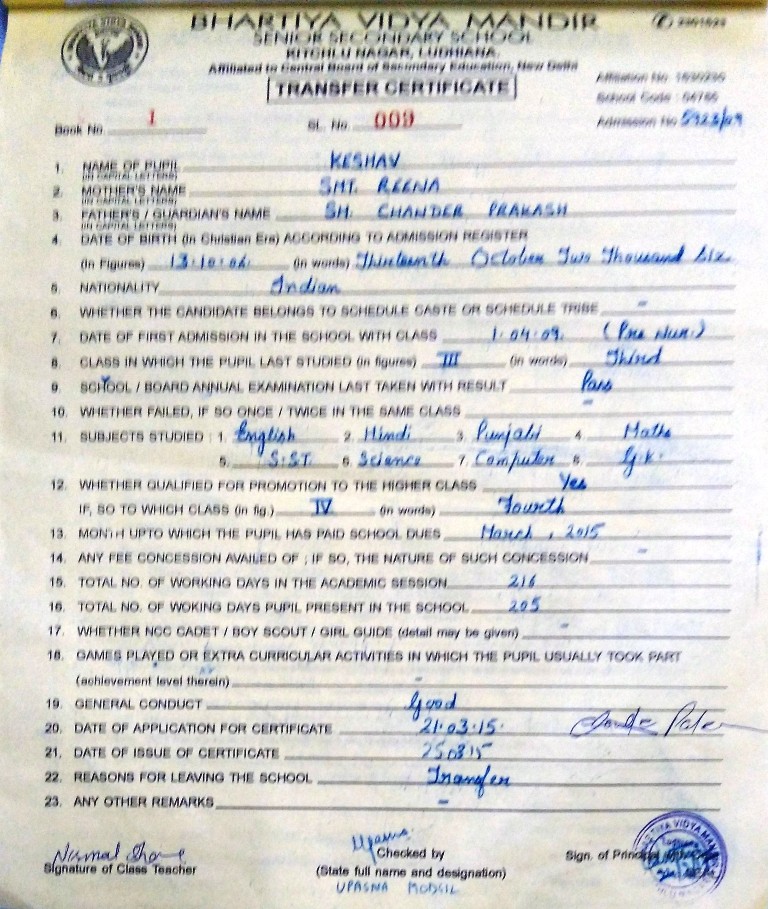 BHARTIYA VIDYA MANDIR
SENIOR SECONDARY SCHOOL
KITCHLU NAGAR, LUDHIANA.
Affiliated to Central Board of Secondary Education, New Delhi
TRANSFER CERTIFICATE
Affiliation No.
School Code :
Book No. 1 SL. No. 009 Admission No 5923/09
1. NAME OF PUPIL KESHAV
(IN CAPITAL LETTERS)
2. MOTHER'S NAME SMT. REENA
(IN CAPITAL LETTERS)
3. FATHER'S / GUARDIAN'S NAME SH. CHANDER PRAKASH
(IN CAPITAL LETTERS)
4. DATE OF BIRTH (In Christian Era) ACCORDING TO ADMISSION REGISTER
(in Figures) 13.10.06. (in words) Thirteenth October Two Thousand Six.
5. NATIONALITY Indian
6. WHETHER THE CANDIDATE BELONGS TO SCHEDULE CASTE OR SCHEDULE TRIBE -
7. DATE OF FIRST ADMISSION IN THE SCHOOL WITH CLASS 1.04.09. (Pre Nur.)
8. CLASS IN WHICH THE PUPIL LAST STUDIED (in figures) III (in words) Third
9. SCHOOL / BOARD ANNUAL EXAMINATION LAST TAKEN WITH RESULT Pass
10. WHETHER FAILED, IF SO ONCE / TWICE IN THE SAME CLASS -
11. SUBJECTS STUDIED : 1. English 2. Hindi 3. Punjabi 4. Maths
5. S.ST. 6. Science 7. Computer 8. G.K.
12. WHETHER QUALIFIED FOR PROMOTION TO THE HIGHER CLASS Yes
IF, SO TO WHICH CLASS (in fig.) IV (in words) Fourth
13. MONTH UPTO WHICH THE PUPIL HAS PAID SCHOOL DUES March, 2015
14. ANY FEE CONCESSION AVAILED OF ; IF SO, THE NATURE OF SUCH CONCESSION -
15. TOTAL NO. OF WORKING DAYS IN THE ACADEMIC SESSION 216
16. TOTAL NO. OF WOKING DAYS PUPIL PRESENT IN THE SCHOOL 205
17. WHETHER NCC CADET / BOY SCOUT / GIRL GUIDE (detail may be given) -
18. GAMES PLAYED OR EXTRA CURRICULAR ACTIVITIES IN WHICH THE PUPIL USUALLY TOOK PART
(achievement level therein) -
19. GENERAL CONDUCT Good
20. DATE OF APPLICATION FOR CERTIFICATE 21.03.15.
21. DATE OF ISSUE OF CERTIFICATE 250315
22. REASONS FOR LEAVING THE SCHOOL Transfer
23. ANY OTHER REMARKS -
Upasna
Signature of Class Teacher Checked by Sign. of Principal
(State full name and designation)
UPASNA MODGIL